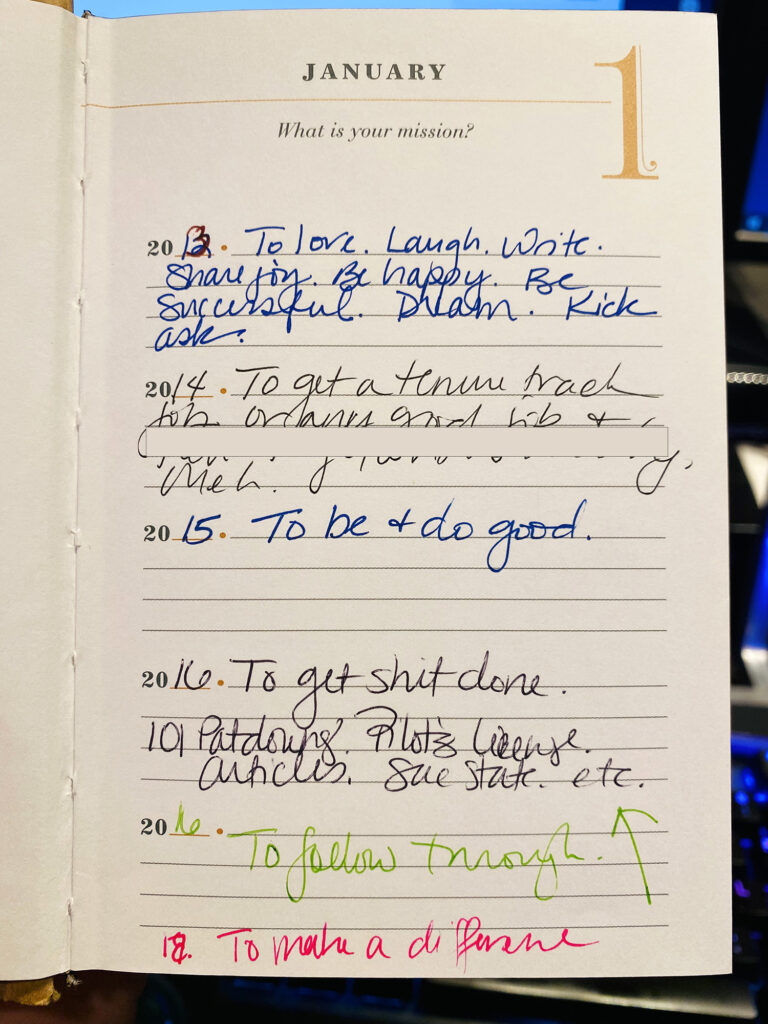 JANUARY
1
What is your mission?
2013 • To love. Laugh. Write.
Share joy. Be happy. Be
Successful. Dream. Kick
ask.
2014 • To get a tenure track
job or
good job &
Meh.
2015 • To be & do good.
2016 • To get shit done.
101 Patdowns. Pilot's license.
articles. Sue State. etc.
2016 •
To follow through.
18. To make a difference